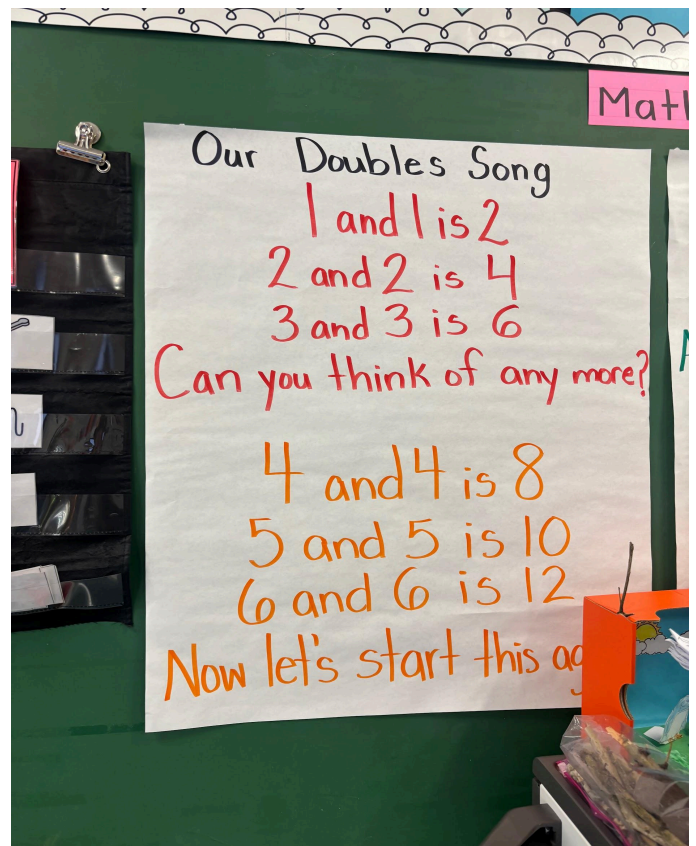 Math
Our Doubles Song
1 and 1 is 2
2 and 2 is 4
3 and 3 is 6
Can you think of any more?
4 and 4 is 8
5 and 5 is 10
6 and 6 is 12
Now let's start this